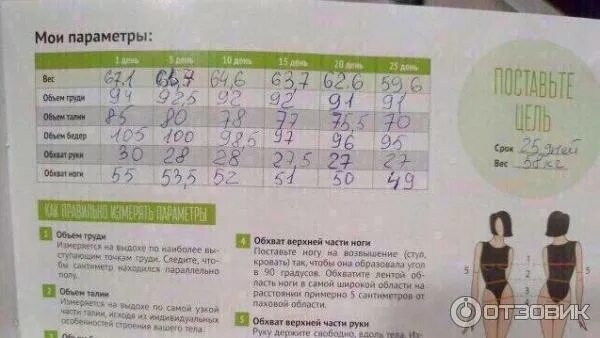 Мои параметры:
1 день 5 день 10 день 15 день 20 день 25 день
Вес 67,1 64,6 63,7 62,6 59,6
Объем груди 94 92,5 92 92 91 91
Объем талии 85 80 78 77 75,5 70
Объем бедер 105 100 98,5 97 96 95
Обхват руки 30 28 28 27,5 27 27
Обхват ноги 55 53,5 52 51 50 49
ПОСТАВЬТЕ
ЦЕЛЬ
Срок 25 дней
Вес 58 кг
КАК ПРАВИЛЬНО ИЗМЕРЯТЬ ПАРАМЕТРЫ
1 Объем груди
Измеряется на выдохе по наиболее выступающим точкам груди. Следите, чтобы
сантиметр находился параллельно
полу.
2 Объем талии
Измеряется на выдохе по самой узкой
части талии, исходя из индивидуальных
особенностей строения вашего тела.
4 Обхват верхней части ноги
Поставьте ногу на возвышение (стул,
кровать) так, чтобы она образовала угол
в 90 градусов. Обхватите лентой область ноги в самой широкой области на
расстоянии примерно 5 сантиметров от
паховой области.
5 Обхват верхней части руки
Руку держите свободно, вдоль тела. Из-
1
2
3
4
5
ОТЗОВИК